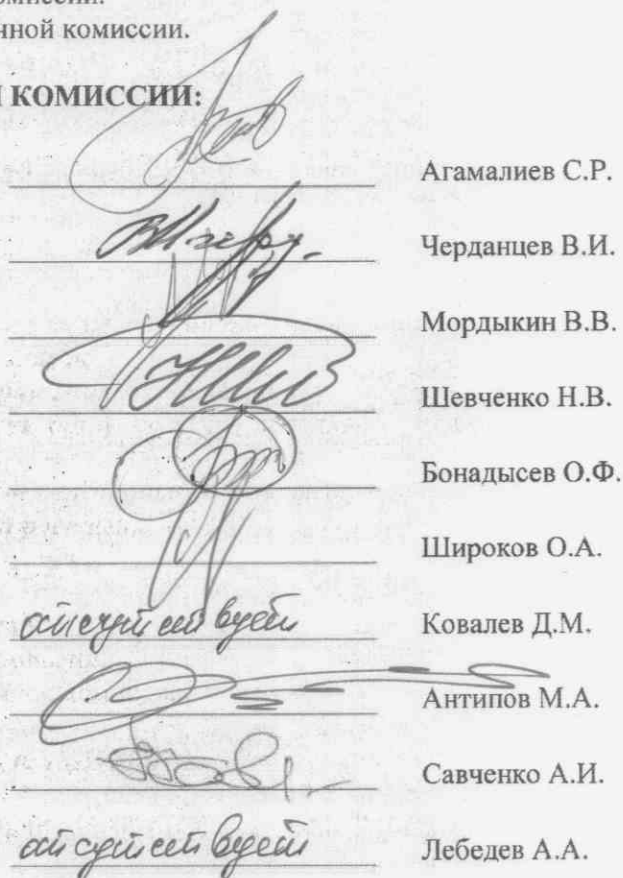 омиссии.
нной комиссии.
И КОМИССИИ:
Агамалиев С.Р.
Черданцев В.И.
Мордыкин В.В.
Шевченко Н.В.
Бонадысев О.Ф.
Широков О.А.
отсутствует Ковалев Д.М.
Антипов М.А.
Савченко А.И.
отсутствует Лебедев А.А.